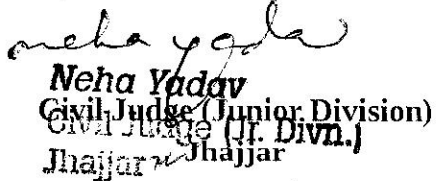 neha yada
Neha Yadav
Civil Judge (Junior Division)
Civil Judge (Jr. Divn.)
Jhajjar
Jhajjar